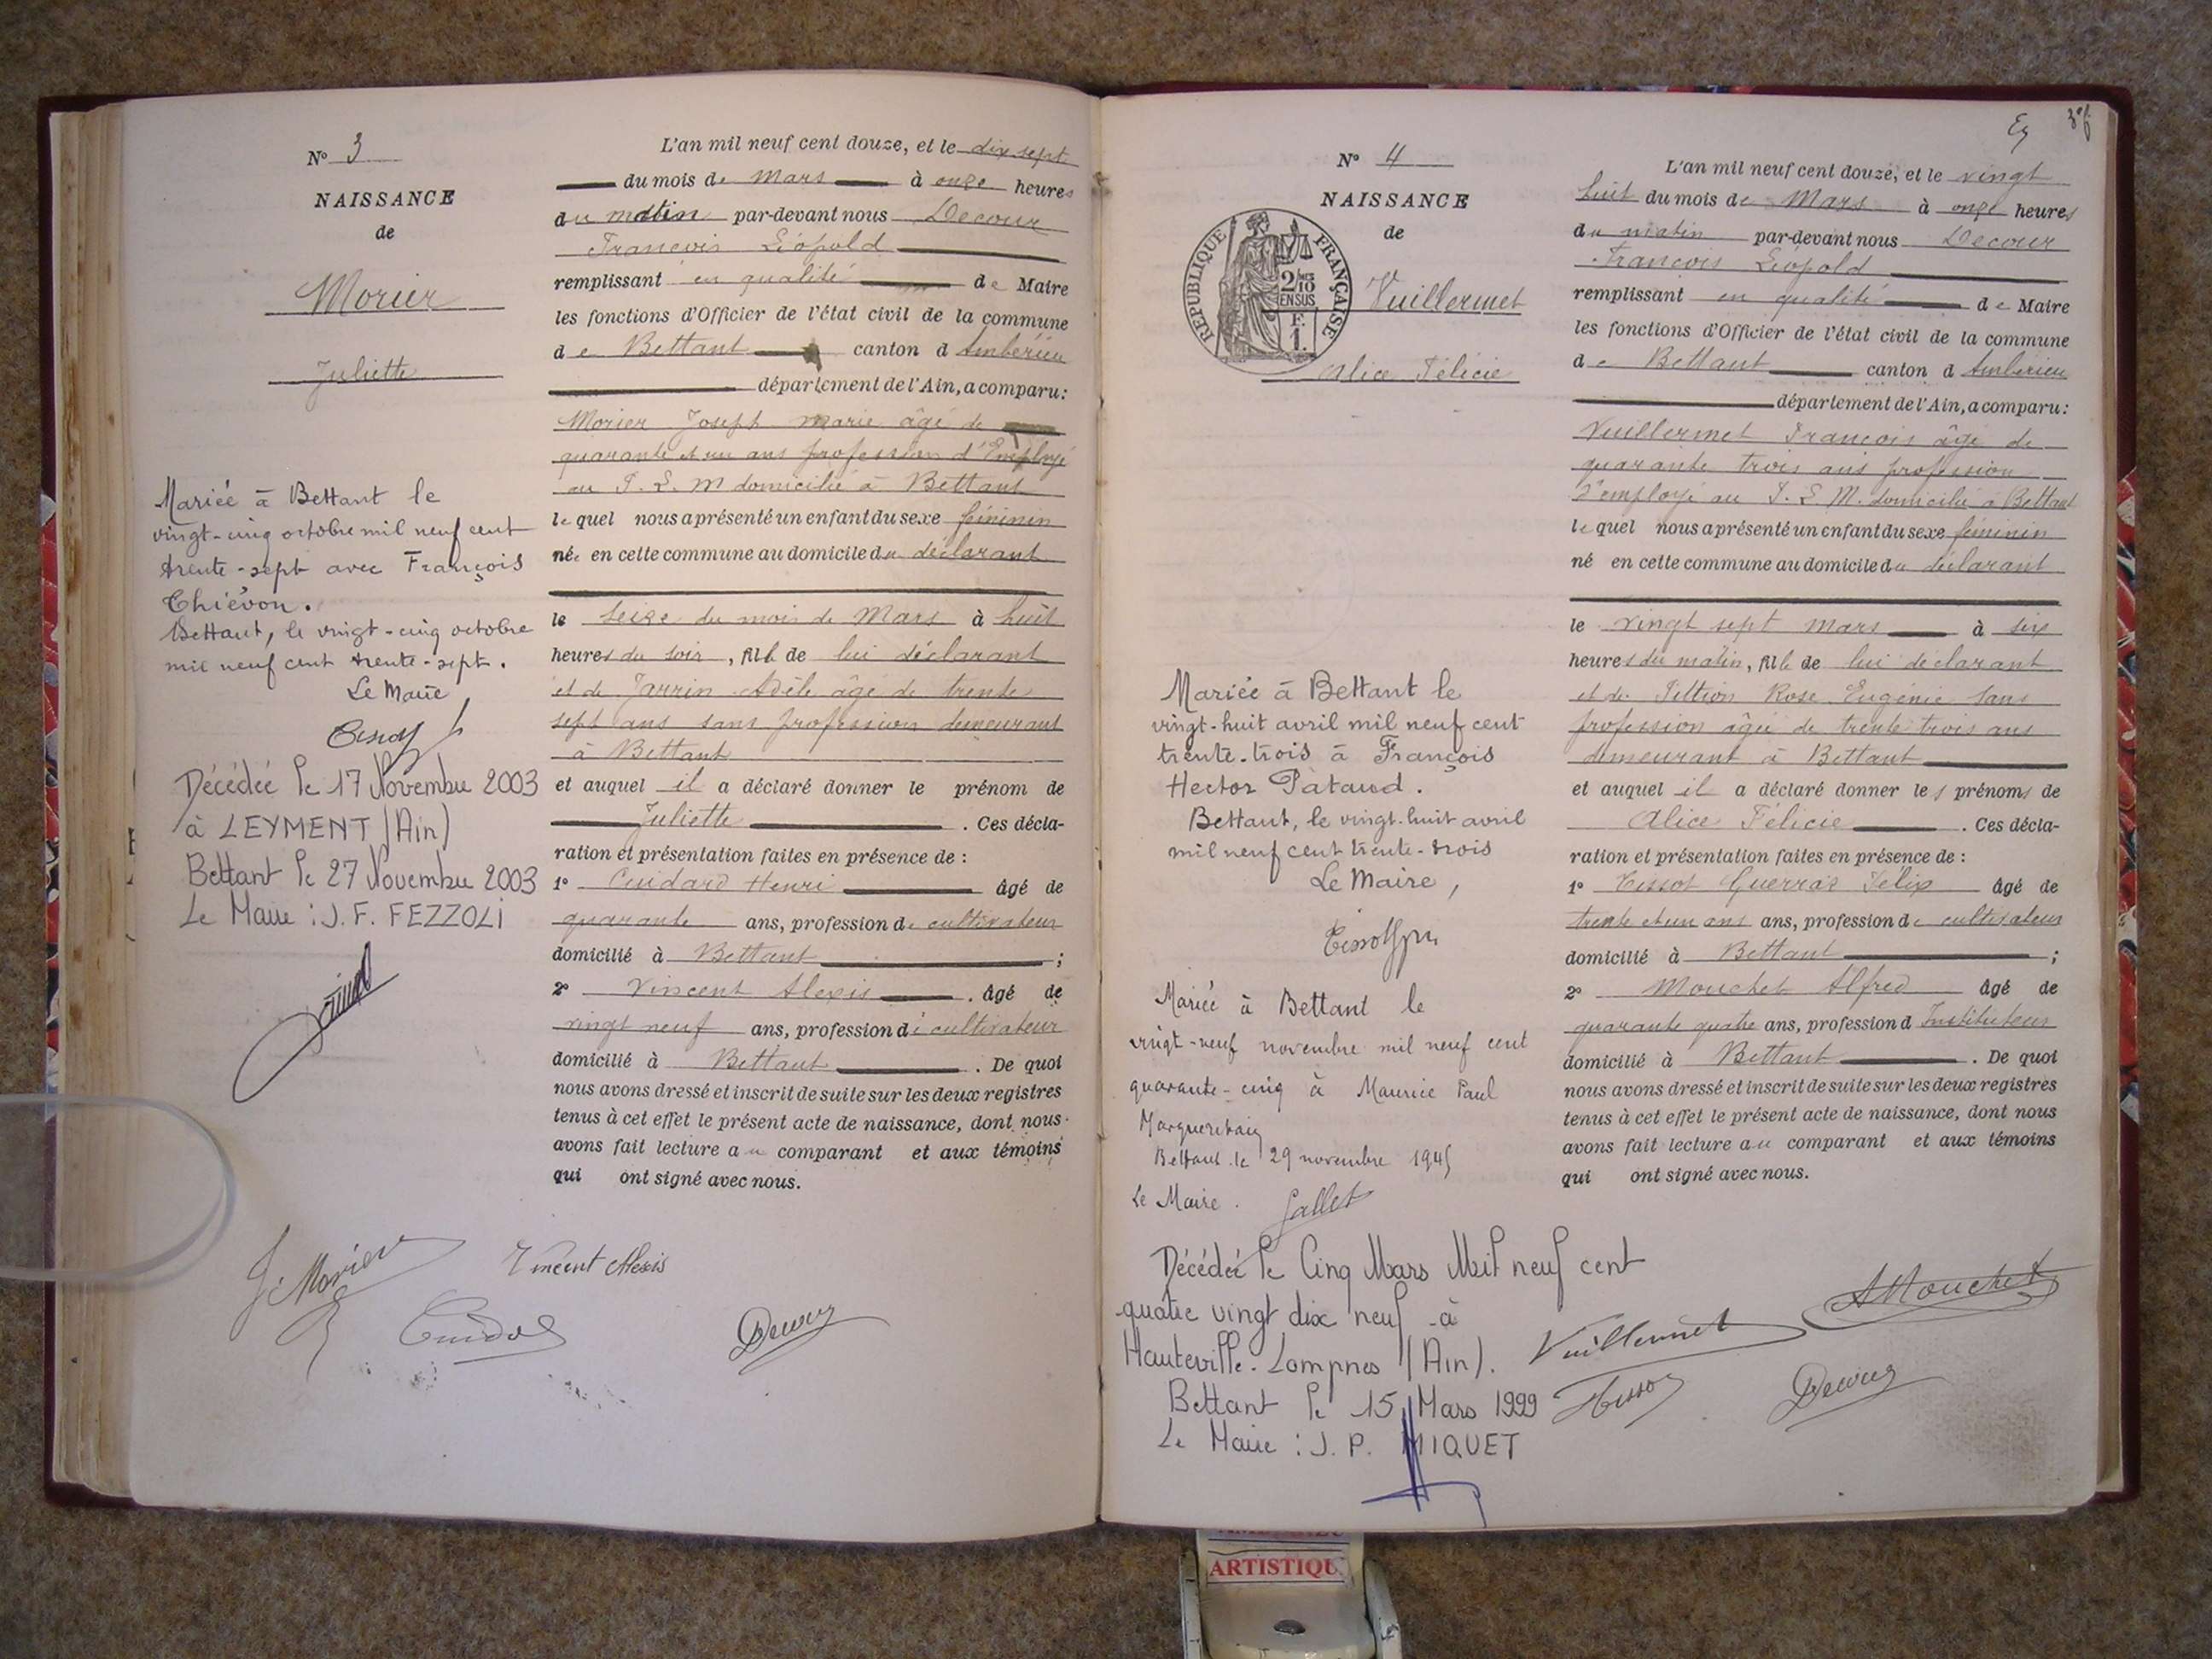 N° 3
NAISSANCE
de
Morier
Juliette
Mariée à Bettant le
vingt-cinq octobre mil neuf cent
trente-sept avec François
Chiévon.
Bettant, le vingt-cinq octobre
mil neuf cent trente-sept.
Le Maire
Tissot
Décédée le 17 Novembre 2003
à LEYMENT (Ain)
Bettant le 27 Novembre 2003
Le Maire : J. F. FEZZOLI
L'an mil neuf cent douze, et le dix sept
du mois de Mars à onze heures
du matin par-devant nous Decour
François Léopold
remplissant en qualité de Maire
les fonctions d'Officier de l'état civil de la commune
de Bettant canton d Ambérieu
département de l'Ain, a comparu:
Morier Joseph Marie âgé de
quarante et un ans profession d'Employé
au P. L. M domicilié à Bettant
lequel nous a présenté un enfant du sexe féminin
née en cette commune au domicile du déclarant
le seize du mois de Mars à huit
heures du soir, fille de lui déclarant
et de Jarrin Adèle âgé de trente
sept ans sans profession demeurant
à Bettant
et auquel il a déclaré donner le prénom de
Juliette. Ces décla-
ration et présentation faites en présence de :
1° Cuidard Henri âgé de
quarante ans, profession de cultivateur
domicilié à Bettant ;
2° Vincent Alexis. âgé de
vingt neuf ans, profession de cultivateur
domicilié à Bettant. De quoi
nous avons dressé et inscrit de suite sur les deux registres
tenus à cet effet le présent acte de naissance, dont nous
avons fait lecture au comparant et aux témoins
qui ont signé avec nous.
J. Morier
Vincent Alexis
Decour
3e f.
N° 4
NAISSANCE
de
REPUBLIQUE FRANÇAISE
2/10
EN SUS
F.
1.
Vuillermet
Alice Félicie
Mariée à Bettant le
vingt-huit avril mil neuf cent
trente-trois à François
Hector Pataud.
Bettant, le vingt-huit avril
mil neuf cent trente-trois
Le Maire,
Mariée à Bettant le
vingt-neuf novembre mil neuf cent
quarante-cinq à Maurice Paul
Bettant le 29 novembre 1945
Le Maire. Gallet
Décédée le Cinq Mars Mil neuf cent
quatre vingt dix neuf à
Hauteville-Lompnes (Ain).
Bettant le 15 Mars 1999
Le Maire : J. P. MIQUET
L'an mil neuf cent douze, et le vingt
huit du mois de Mars à onze heures
du matin par-devant nous Decour
François Léopold
remplissant en qualité de Maire
les fonctions d'Officier de l'état civil de la commune
de Bettant canton d Ambérieu
département de l'Ain, a comparu:
Vuillermet François âgé de
quarante trois ans profession
d'employé au P. L. M. domicilié à Bettant
lequel nous a présenté un enfant du sexe féminin
né en cette commune au domicile du déclarant
le vingt sept mars à six
heures du matin, fille de lui déclarant
et de Pittion Rose Eugénie sans
profession âgée de trente trois ans
demeurant à Bettant
et auquel il a déclaré donner les prénoms de
Alice Félicie. Ces décla-
ration et présentation faites en présence de :
1° Tissot Guerraz Félix âgé de
trente et un ans ans, profession de cultivateur
domicilié à Bettant ;
2° Mouchet Alfred âgé de
quarante quatre ans, profession d Instituteur
domicilié à Bettant. De quoi
nous avons dressé et inscrit de suite sur les deux registres
tenus à cet effet le présent acte de naissance, dont nous
avons fait lecture au comparant et aux témoins
qui ont signé avec nous.
AMouchet
Vuillermet
Tissot
Decour
ARTISTIQU